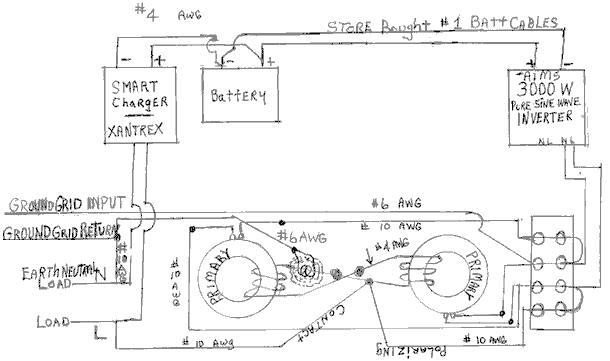 #4 AWG
STORE Bought #1 BATT CABLES
- +
- +
+ -
SMART
Charger
XANTREX
BATTERY
AIMS
3000 W
PURE SINE WAVE
INVERTER
N L N L
GROUND GRID INPUT
#6 AWG
GROUND GRID RETURN
# 10 AWG
#6 AWG
#4 AWG
EARTH NEUTRAL N
LOAD
# 10 AWG
PRIMARY
PRIMARY
LOAD
L
CONTACT
# 10 AWG
Polarizing
# 10 AWG